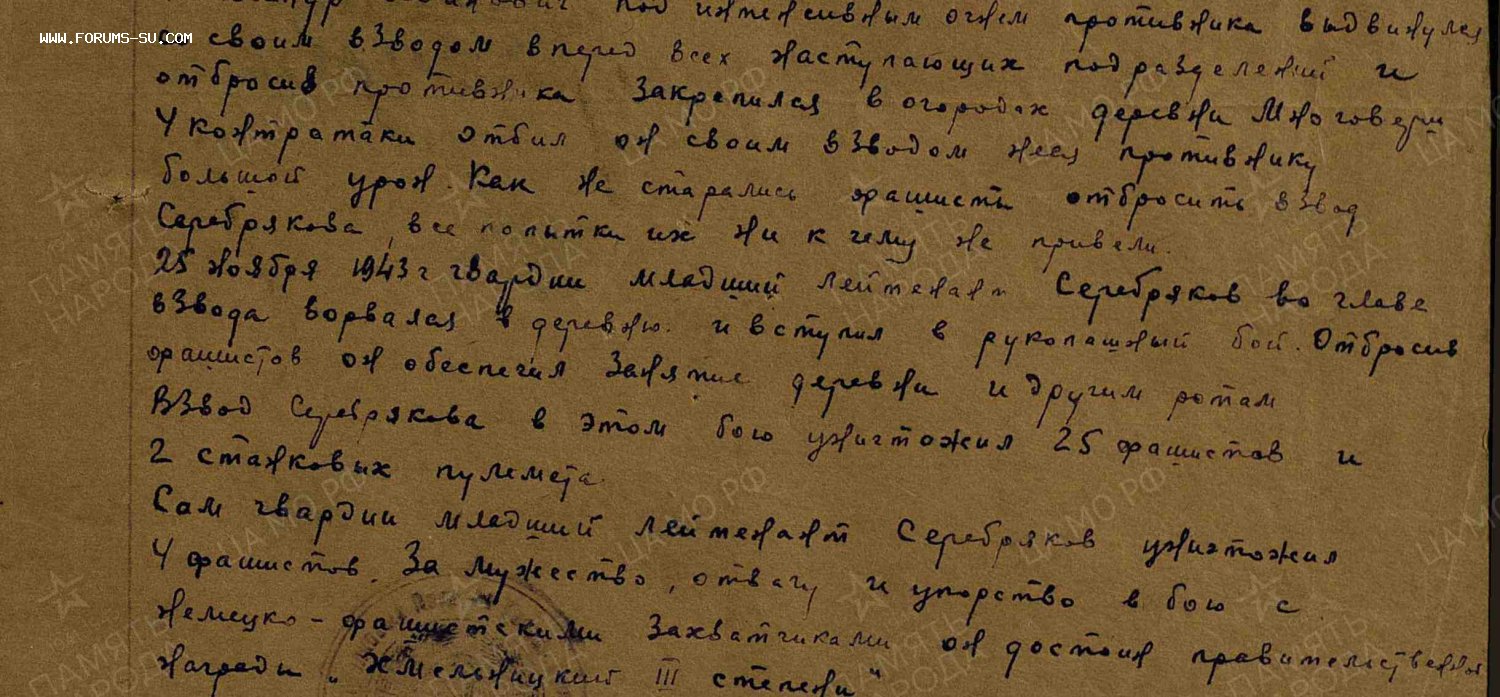 под интенсивным огнем противника выдвинулся
WWW.FORUMS-SU.COM
со своим взводом вперед всех наступающих подразделений и
отбросив противника закрепился в огородах деревни Многоверш
4 контратаки отбил он своим взводом неся противнику
большой урон. Как не старались фашисты отбросить взвод
Серебрякова, все попытки их ни к чему не привели.
25 ноября 1943 г гвардии младший лейтенант Серебряков во главе
взвода ворвался в деревню и вступил в рукопашный бой. Отбросив
фашистов он обеспечил занятие деревни и другим ротам
Взвод Серебрякова в этом бою уничтожил 25 фашистов и
2 станковых пулемета.
Сам гвардии младший лейтенант Серебряков уничтожил
4 фашистов. За мужество, отвагу и упорство в бою с
немецко-фашистскими захватчиками он достоин правительственной
награды „Хмельницкий III степени"
ПАМЯТЬ НАРОДА
ЦАМО РФ